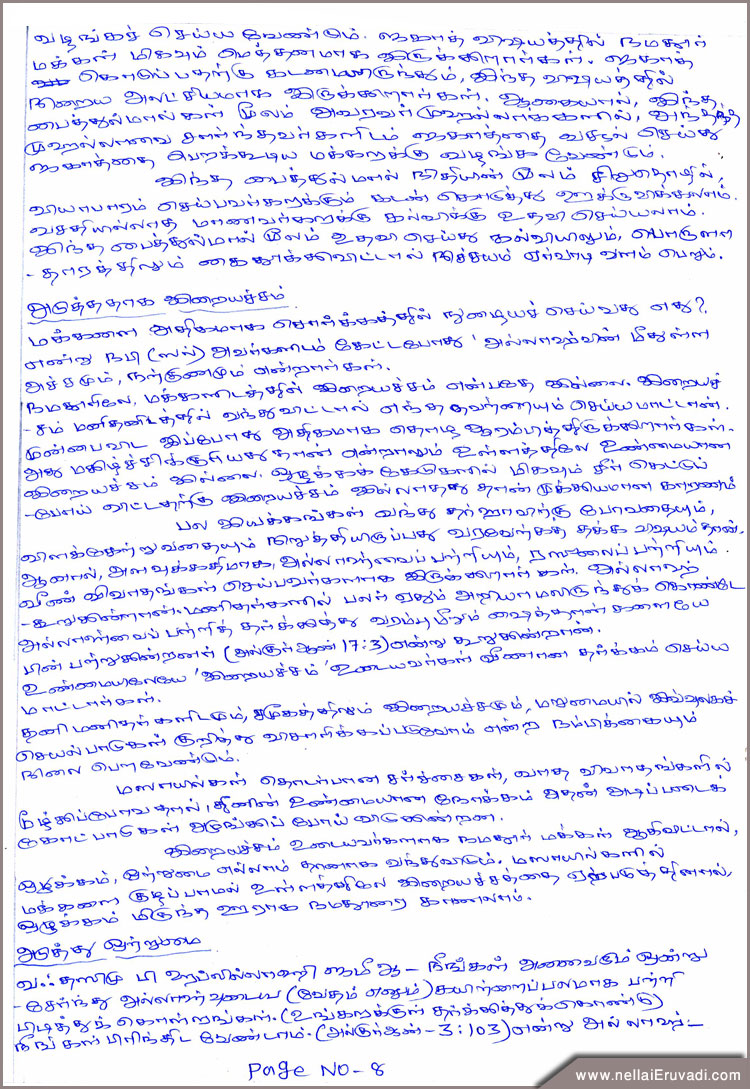 வழங்கச் செய்ய வேண்டும். ஜகாத் விஷயத்தில் நமதூர்
மக்கள் மிகவும் மெத்தனமாக இருக்கிறார்கள். ஜகாத்
கொடுப்பதற்கு கடமையிருந்தும், இந்த விஷயத்தில்
நிறைய அலட்சியமாக இருக்கிறார்கள். ஆகையால், இந்த
பைத்துல்மால்கள் மூலம் அவரவர் முஹல்லாக்களில், அந்தந்த
முஹல்லாவை சார்ந்தவர்களிடம் ஜகாத்தை வசூல் செய்து
ஜகாத்தை பெறக்கூடிய மக்களுக்கு வழங்க வேண்டும்.
இந்த பைத்துல்மால் நிதியின் மூலம் சிறுதொழில்,
வியாபாரம் செய்பவர்களுக்கும் கடன் கொடுத்து ஊக்குவிக்கலாம்.
வசதியில்லாத மாணவர்களுக்கு கல்விக்கு உதவி செய்யலாம்.
இந்த பைத்துல்மால் மூலம் உதவி செய்து கல்வியிலும், பொருளா
- தாரத்திலும் கை தூக்கிவிட்டால் நிச்சயம் ஏர்வாடி வளம் பெறும்.
அடுத்ததாக இறையச்சம்
மக்களை அதிகமாக சொர்க்கத்தில் நுழையச் செய்வது எது?
என்று நபி (ஸல்) அவர்களிடம் கேட்டபோது 'அல்லாஹ்வின் மீதுள்ள
அச்சமும், நற்குணமும் என்றார்கள்.
நமதூரிலே, மக்களிடத்தில் இறையச்சம் என்பதே இல்லை. இறையச்
- சம் மனிதனிடத்தில் வந்துவிட்டால் எந்த தவறையும் செய்ய மாட்டான்.
முன்பைவிட இப்போது அதிகமாக தொழ ஆரம்பித்திருக்கிறார்கள்.
அது மகிழ்ச்சிக்குரியது தான் என்றாலும் உள்ளத்திலே உண்மையான
இறையச்சம் இல்லை. ஒழுக்கக் கேடுகளில் மிகவும் சீர் கெட்டுப்
- போய் விட்டதற்கு இறையச்சம் இல்லாதது தான் முக்கியமான காரணம்
பல இயக்கங்கள் வந்து தர்ஹாவிற்கு போவதையும்,
விளக்கேற்றுவதையும் நிறுத்தியிருப்பது வரவேற்கத் தக்க விஷயம்தான்.
ஆனால், அளவுக்கதிமாக, அல்லாஹ்வைப் பற்றியும், ரஸூலைப் பற்றியும்
வீண் விவாதங்கள் செய்பவர்களாக இருக்கிறார்கள். அல்லாஹ்
- கூறுகின்றான். மனிதர்களில் பலர் ஏதும் அறியாமலிருந்துக் கொண்டே
அல்லாஹ்வைப் பற்றித் தர்க்கித்து வரம்பு மீறும் ஷைத்தான்களையே
பின் பற்றுகின்றனர் (அல்குர்ஆன் 17:3) என்று கூறுகின்றான்.
உண்மையிலேயே 'இறையச்சம்' உடையவர்கள் வீணான தர்க்கம் செய்ய
மாட்டார்கள்.
தனி மனிதர்களிடமும், சமூகத்திலும் இறையச்சமும், மறுமையில் இவ்வுலகச்
செயல்பாடுகள் குறித்து விசாரிக்கப்படுவோம் என்ற நம்பிக்கையும்
நிலை பெறவேண்டும்.
மஸாயில்கள் தொடர்பான சர்ச்சைகள், வாத விவாதங்களில்
மூழ்கிப்போவதால், தீனின் உண்மையான நோக்கம் அதன் அடிப்படைக்
கோட்பாடுகள் அமுங்கிப் போய் விடுகின்றன.
இறையச்சம் உடையவர்களாக நமதூர் மக்கள் ஆகிவிட்டால்,
ஒழுக்கம், ஒற்றுமை எல்லாம் தானாக வந்துவிடும். மஸாயில்களில்
மக்களை குழப்பாமல் உள்ளத்திலே இறையச்சத்தை ஏற்படுத்தினால்,
ஒழுக்கம் மிகுந்த ஊராக நமதூரை காணலாம்.
அடுத்து ஒற்றுமை
வஃதஸிமு பி ஹப்லில்லாஹி ஜமீஆ - நீங்கள் அனைவரும் ஒன்று
- சேர்ந்து அல்லாஹ்வுடைய (வேதம் எனும்) கயிற்றைப் பலமாக பற்றி
பிடித்துக் கொள்ளுங்கள். (உங்களுக்குள் தர்க்கித்துக்கொண்டு)
நீங்கள் பிரிந்திட வேண்டாம். (அல்குர்ஆன் - 3:103) என்று அல்லாஹ் -
Page NO - 8
www.nellaiEruvadi.com